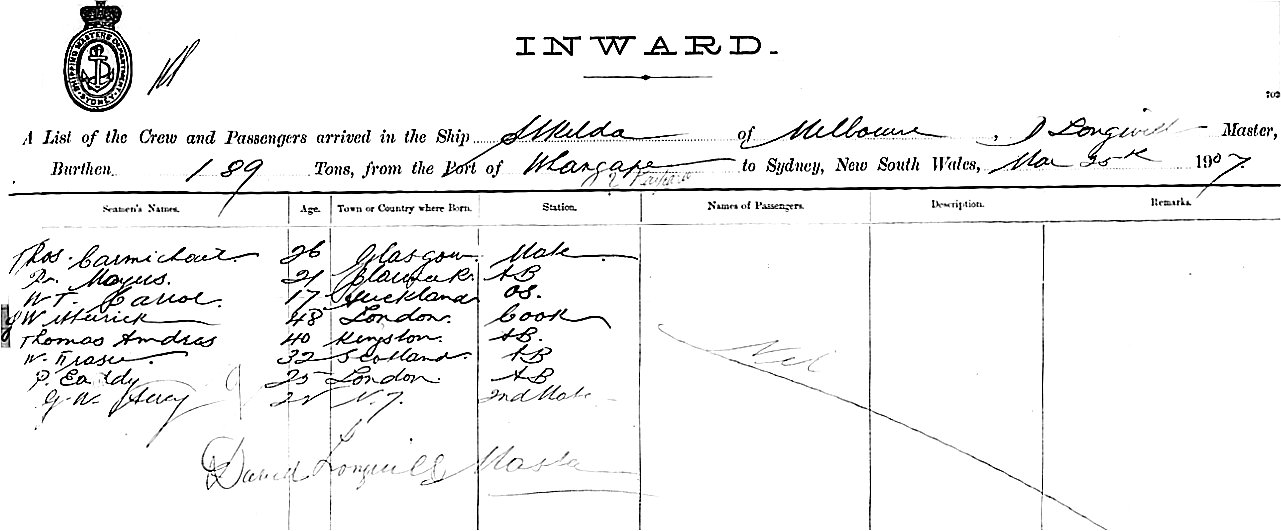 SHIPPING MASTERS DEPARTMENT SYDNEY
INWARD.
702
A List of the Crew and Passengers arrived in the Ship St Kilda of Melbourne, D Longwill Master,
Burthen 189 Tons, from the Port of Whangape to Sydney, New South Wales, Mar 25th 1907.
Seamen's Names. Age. Town or Country where Born. Station. Names of Passengers. Description. Remarks.
Thos. Carmichael 26 Glasgow Mate
21 AB
W T. Carrol 17 Auckland OS.
48 London. Cook
Thomas Andras 40 Kingston. AB.
W. Fraser 32 Scotland. AB
P. Eardy 25 London AB
G. W. 22 N. Z. 2nd Mate
Nil
David Longwill Master